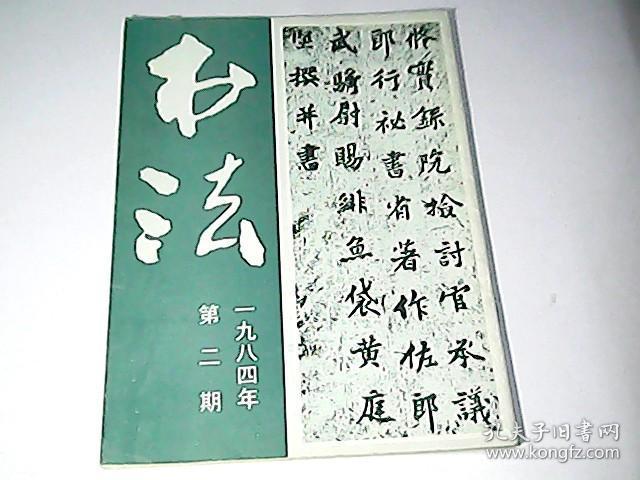 书法
一九八四年
第二期
修實錄院檢討官承議
郎行祕書省著作佐郎
武騎尉賜緋魚袋黄庭
堅撰并書
孔夫子旧书网
www.kongfz.com